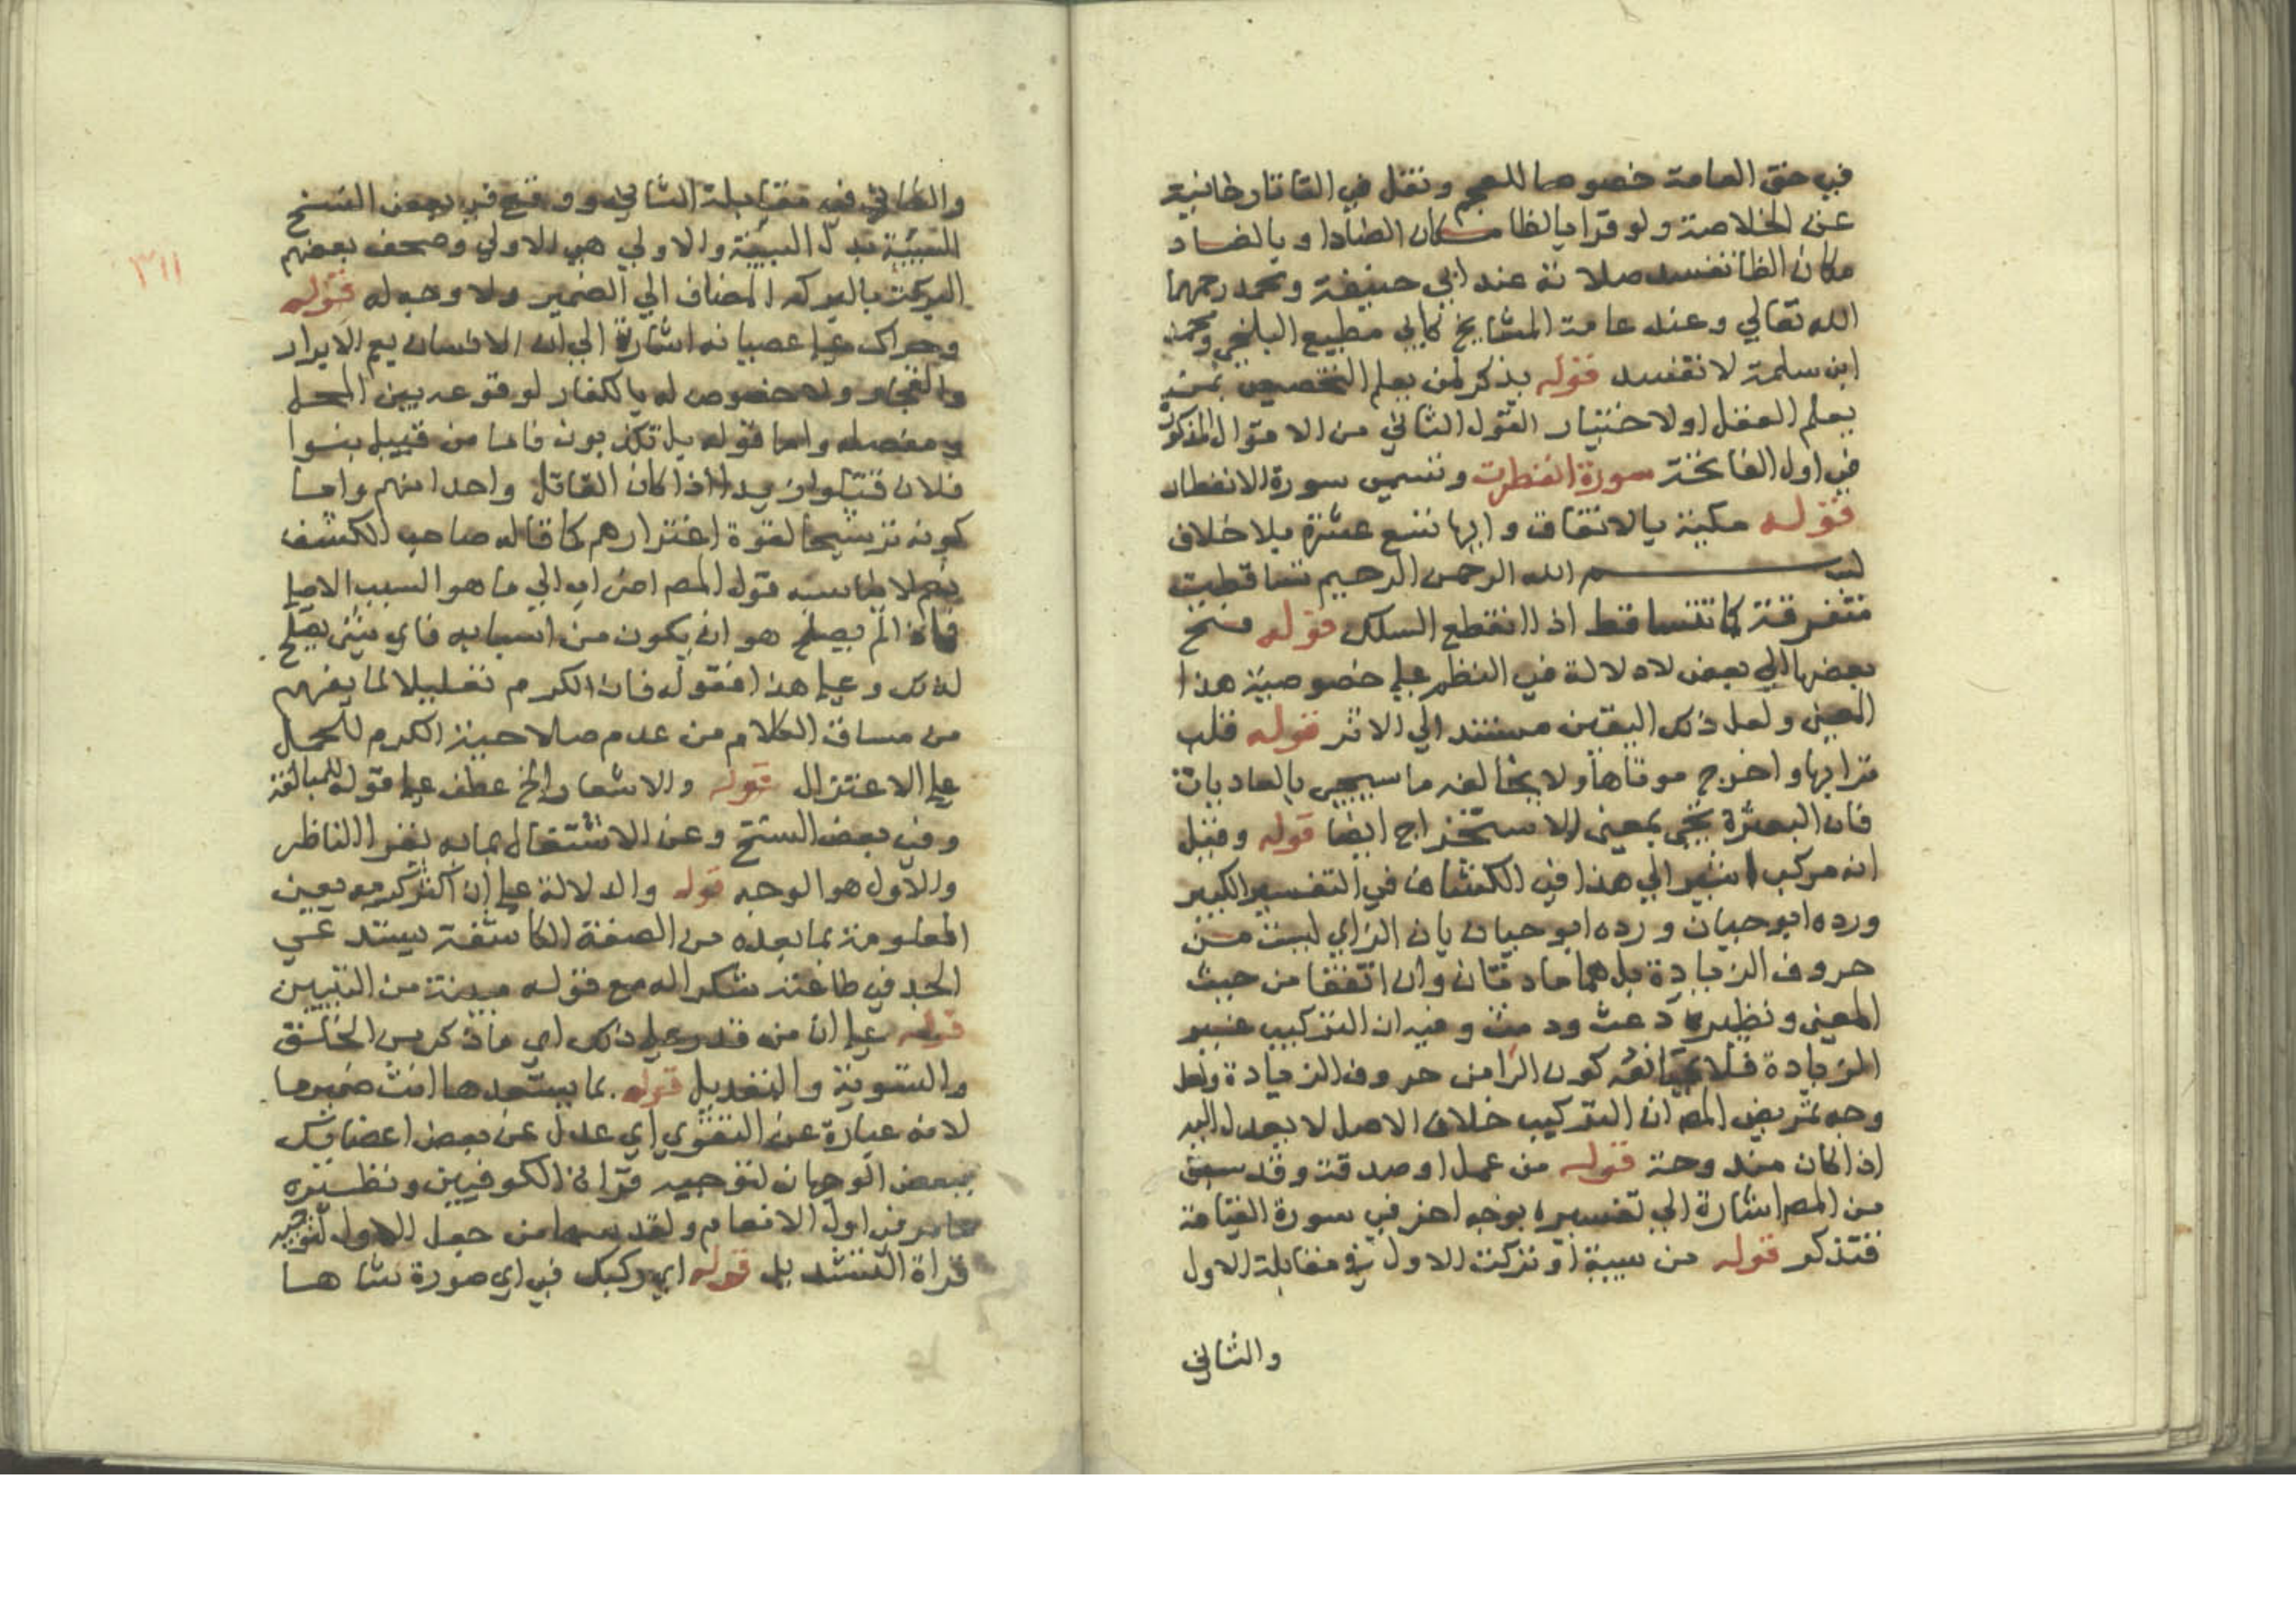 في حق العامة خصوصا للعجم ونقل في التاتارخانية
عن الخلاصة ولو قرا بالظا مكان الضاد او بالضاد
مكان الظا تفسد صلاته عند ابي حنيفة ومحمد رحمهما
الله تعالي وعند عامة المشايخ كابي مطيع البلخي ومحمد
ابن سلمة لا تفسد قوله بذكر لمن يعلم التخصيص بمن
يعلم العقل او لاختيار القول الثاني من الاقوال المذكورة
في اول الفاتحة سورة انفطرت وتسمى سورة الانفطار
قوله مكية بالاتفاق وايها تسع عشرة بلا خلاف
بسم الله الرحمن الرحيم تساقطت
متفرقة كما تتساقط اذا انقطع السلك قوله فتح
بعضها الي بعض لا دلالة في النظم علي خصوصية هذا
المعنى ولعل ذلك اليقين مستند الي الاثر قوله قلب
ترابها واخرج موتاها ولا يخالفه ما سيجي بالعاديات
فان البعثرة يجي بمعنى الاستخراج ايضا قوله وقيل
انه مركب اشير الي هذا في الكشاف في التفسير الكبير
ورده ابو حيان ورده ابو حيان بان الزاي ليست من
حروف الزيادة بل هما مادتان وان اتفقا من حيث
المعنى ونظيره دعث ودمث وفيه ان التركيب غير
الزيادة فلا يمانعه كون الرا من حروف الزيادة ولعل
وجه تمريض المص ان التركيب خلاف الاصل لا يعدل اليه
اذا كان مندوحة قوله من عمل او صدقة وقد سبق
من المص اشارة الي تفسيره بوجه اخر في سورة القيامة
فتذكر قوله من سيئة او تركت الاول في مقابلة الاول
والثاني
٣١١
والثاني في مقابلة الثاني ووقع في بعض النسخ
السيئة بدل البينة والاولي هي الاولي وصحف بعضهم
التركت بالتركه المضاف الي الضمير ولا وجه له قوله
وجراك علي عصيانه اشارة الي ان الانسان يعم الابرار
والفجار ولا خصوص له بالكفار لوقوعه بين المجمل
ومفصله واما قوله بل تكذبون فاما من قبيل بنوا
فلان قتلوا زيدا اذا كان القاتل واحدا منهم واما
كونه ترشيحا لقوة اغترارهم كما قاله صاحب الكشف
نعم لا يناسبه قول المص اضراب الي ما هو السبب الاصلي
فاذا لم يصلح هو ان يكون من اسبابه فاي شئ يصلح
لذلك وعلي هذا فقوله فان الكرم تعليلا لما يفهم
من مساق الكلام من عدم صلاحية الكرم للحمل
علي الاعتزال قوله والاشعار الخ عطف علي قوله للمبالغة
وفي بعض النسخ وعن الاشتغال بما به يغر الناظر
والاول هو الوجه قوله والدلالة علي ان كثرة كرمه يعين
المعلومة بما بعده من الصفة الكاشفة يستدعي
الجد في طاعته شكرا له مع قوله مبينة من التبيين
قوله علي ان من قدر علي ذلك اي ما ذكر من الخلق
والتسوية والتعديل قوله بما يستعدها انث ضميرها
لانه عبارة عن التقوي اي عدل عن بعض اعضايك
ببعض الوجهان لتوجيه قراة الكوفيين ونظيره
مامر في اول الانعام ولقد سها من جعل الاول لتوجيه
قراة التشديد قوله اي ركبك في اي صورة شاها